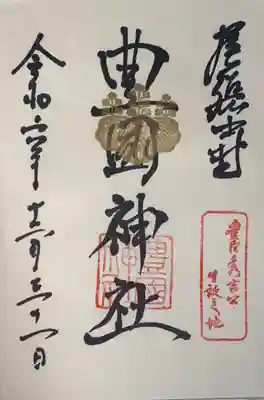 尾張中村
豐臣秀吉公
生誕之地
豊國神社
令和六年十二月三十一日